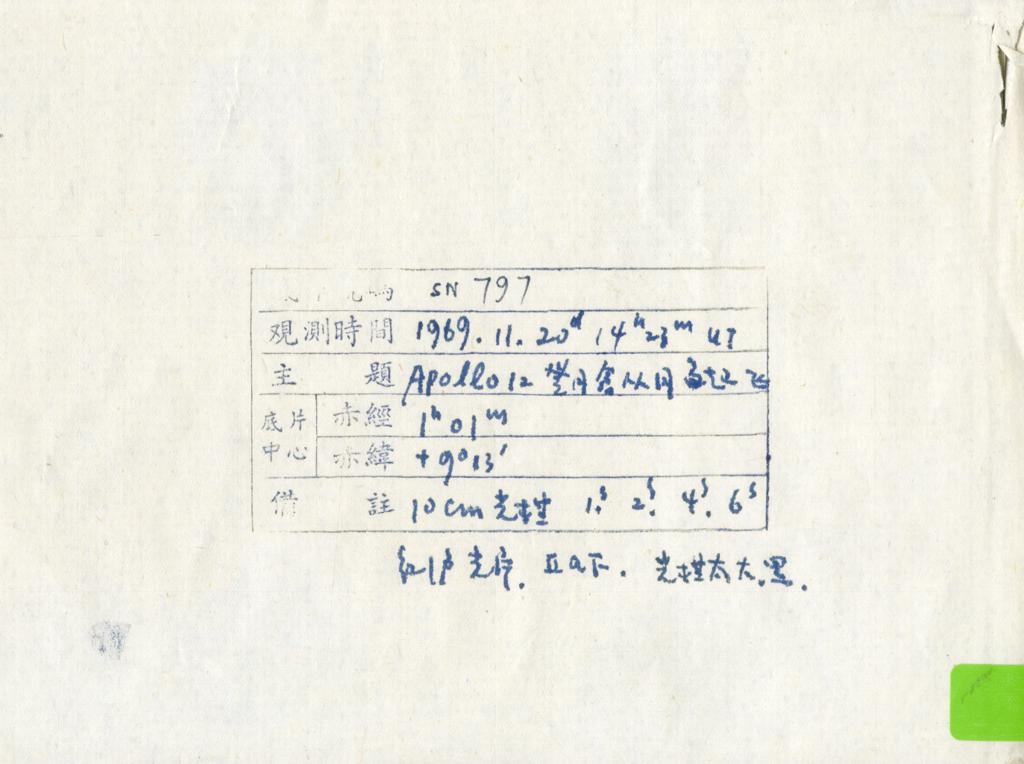 SN 797
観測時間 1969.11.20d 14h23m UT
主題 Apollo 12 登月舱从月面起飞
底片中心 赤經 1h01m
赤緯 +9°13′
備註 10cm 光 1s. 2s. 4s. 6s
光 太大